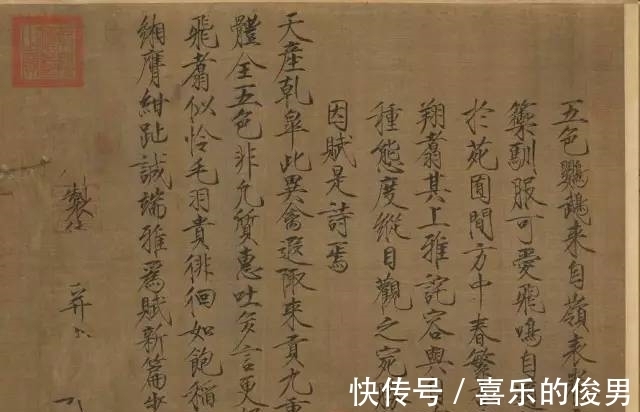 五色鸚鵡来自嶺表
籞馴服可愛飛鳴自
於苑囿間方中春繁
翔翥其上雅詫容與
種態度縱目觀之宛
因賦是詩焉
天産乹皐此異禽遐陬来貢九重
體全五色非凡質惠吐多言更
飛翥似怜毛羽貴徘徊如飽稻
緗膺紺趾誠端雅為賦新篇步
製
并
快传号 / 喜乐的俊男